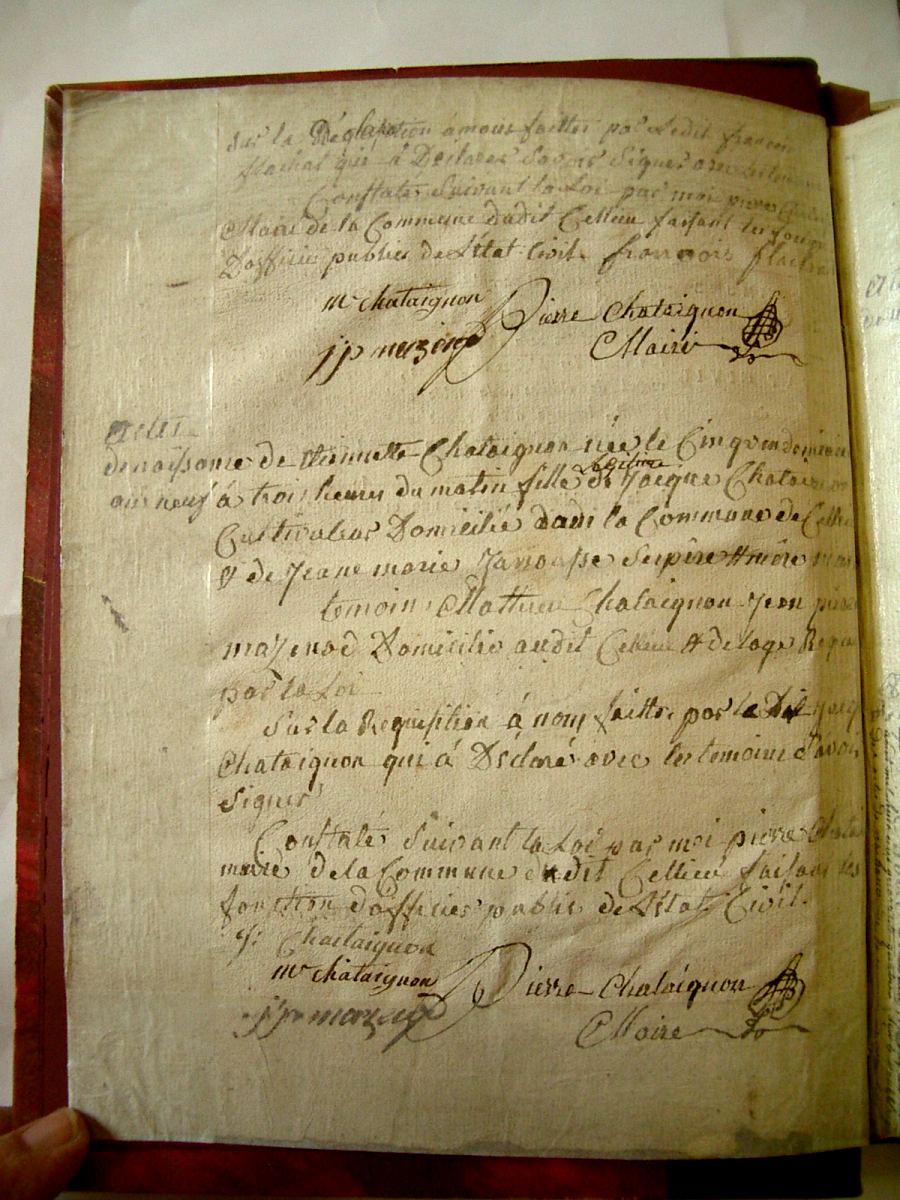 sur la Déclaration à nous faitte par Ledit françois
flachat qui à Déclarer Savoir Signer avec les temoins
Constater Suivant la Loi par moi pierre
Maire de la Commune dudit Cellieu faisant les
D'officier public de L'état Civil françois flachat
Mr chataignon Pierre Chataignon
jp mazenod Maire
Actes
de naissance de Etiennette Chataignon née le Cinq vendemiaire
an neuf à trois heures du matin fille Legitime de Jacque Chataignon
Cultivateur Domicilié dans la Commune de Cellieu
& de Jeane marie Janousse Ses père & mère
temoins Mathieu Chataignon Jean pierre
mazenod Domicilié audit Cellieu & de l'age Requi
par la Loi
Sur la Requisition à nous faitte par le Dit Jacque
Chataignon qui à Déclaré avec les temoins Savoir
Signer
Constaté Suivant la Loi par moi pierre
maire de la Commune dudit Cellieu faisant les
fonction d'officier public de L'état Civil.
J: Chataignon
Mr chataignon Pierre Chataignon
jp mazenod Maire